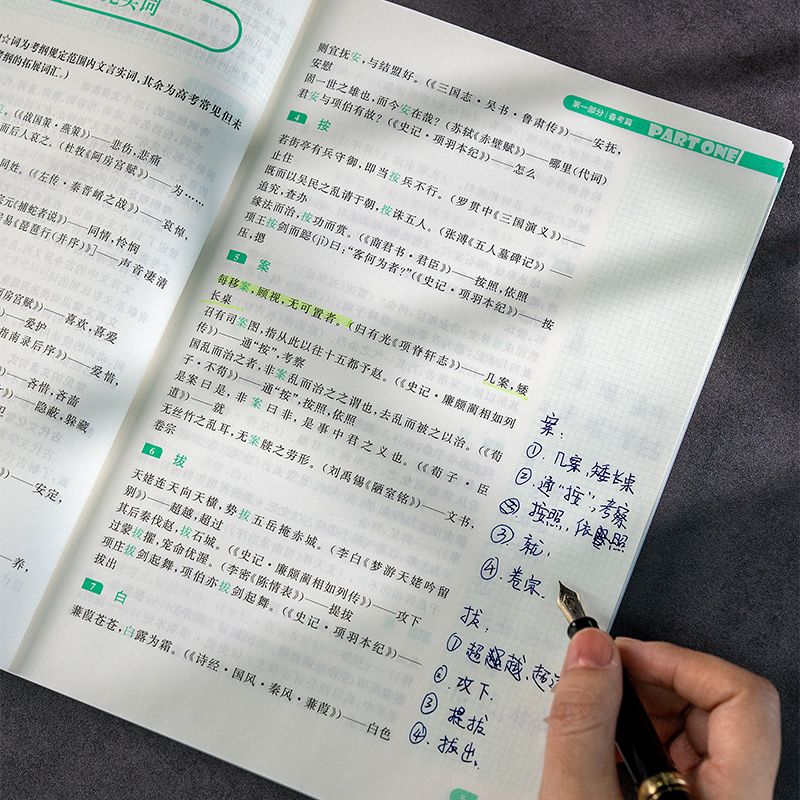 实词
☆词为考纲规定范围内文言实词,其余为高考常见但未
考纲的拓展词汇。)
(《战国策·燕策》)——悲伤,悲痛
而后人哀之。(杜牧《阿房宫赋》)——为……
同姓。(《左传·秦晋崤之战》)——哀悼,
宗元《捕蛇者说》)——同情,怜悯
易《琵琶行(并序)》]——声音凄清
阿房宫赋》)——喜欢,喜爱
——爱护
指南录后序》)——爱惜,
——吝惜,吝啬
——隐蔽,躲藏,
——安定,
——养,
第一部分|备考篇
PART ONE
则宜抚安,与结盟好。(《三国志·吴书·鲁肃传》)——安抚,
安慰
固一世之雄也,而今安在哉?(苏轼《赤壁赋》)——哪里(代词)
君安与项伯有故?(《史记·项羽本纪》)——怎么
4 按
若街亭有兵守御,即当按兵不行。(罗贯中《三国演义》)——
止住
既而以吴民之乱请于朝,按诛五人。(张溥《五人墓碑记》)——
追究,查办
缘法而治,按功而赏。(《商君书·君臣》)——按照,依照
项王按剑而跽(jì)曰:“客何为者?”(《史记·项羽本纪》)——按
压,摁
5 案
每移案,顾视,无可置者。(归有光《项脊轩志》)——几案,矮
长桌
召有司案图,指从此以往十五都予赵。(《史记·廉颇蔺相如列
传》)——通“按”,考察
国乱而治之者,非案乱而治之之谓也,去乱而被之以治。(《荀
子·不苟》)——通“按”,按照,依照
是案曰是,非案曰非,是事中君之义也。(《荀子·臣
道》)——就
无丝竹之乱耳,无案牍之劳形。(刘禹锡《陋室铭》)——文书,
卷宗
6 拔
天姥连天向天横,势拔五岳掩赤城。(李白《梦游天姥吟留
别》)——超越,超过
其后秦伐赵,拔石城。(《史记·廉颇蔺相如列传》)——攻下
过蒙拔擢,宠命优渥。(李密《陈情表》)——提拔
项庄拔剑起舞,项伯亦拔剑起舞。(《史记·项羽本纪》)——
拔出
7 白
蒹葭苍苍,白露为霜。(《诗经·国风·秦风·蒹葭》)——白色
案:
①几案,矮长桌
②通“按”,考察
按照,依照
③就,
④卷宗.
拔:
①超越,超
②攻下
③提拔
④拔出,